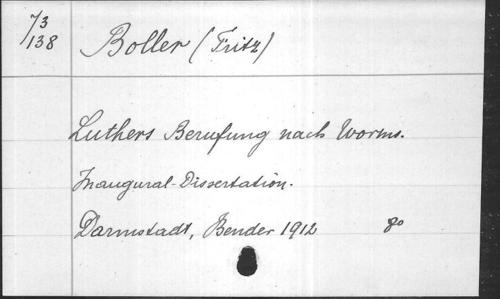 7/3
/138
Boller (Fritz)
Luthers Berufung nach Worms.
Inaugural-Dissertation.
Darmstadt, Bender 1912 8o